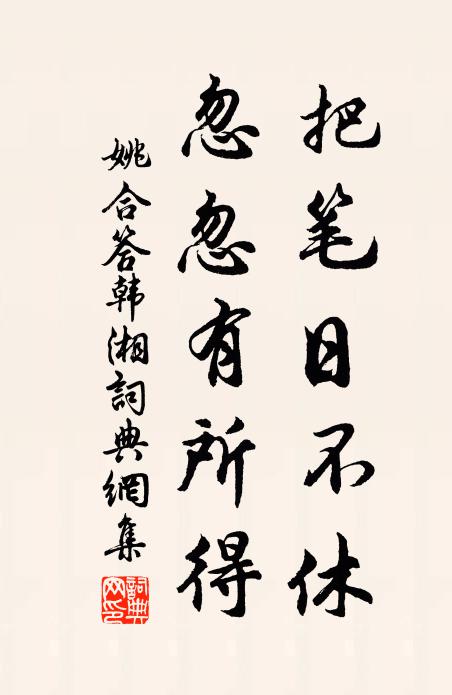 把笔日不休
忽忽有所得
姚合答韩湘詞典網集
詞典
网印